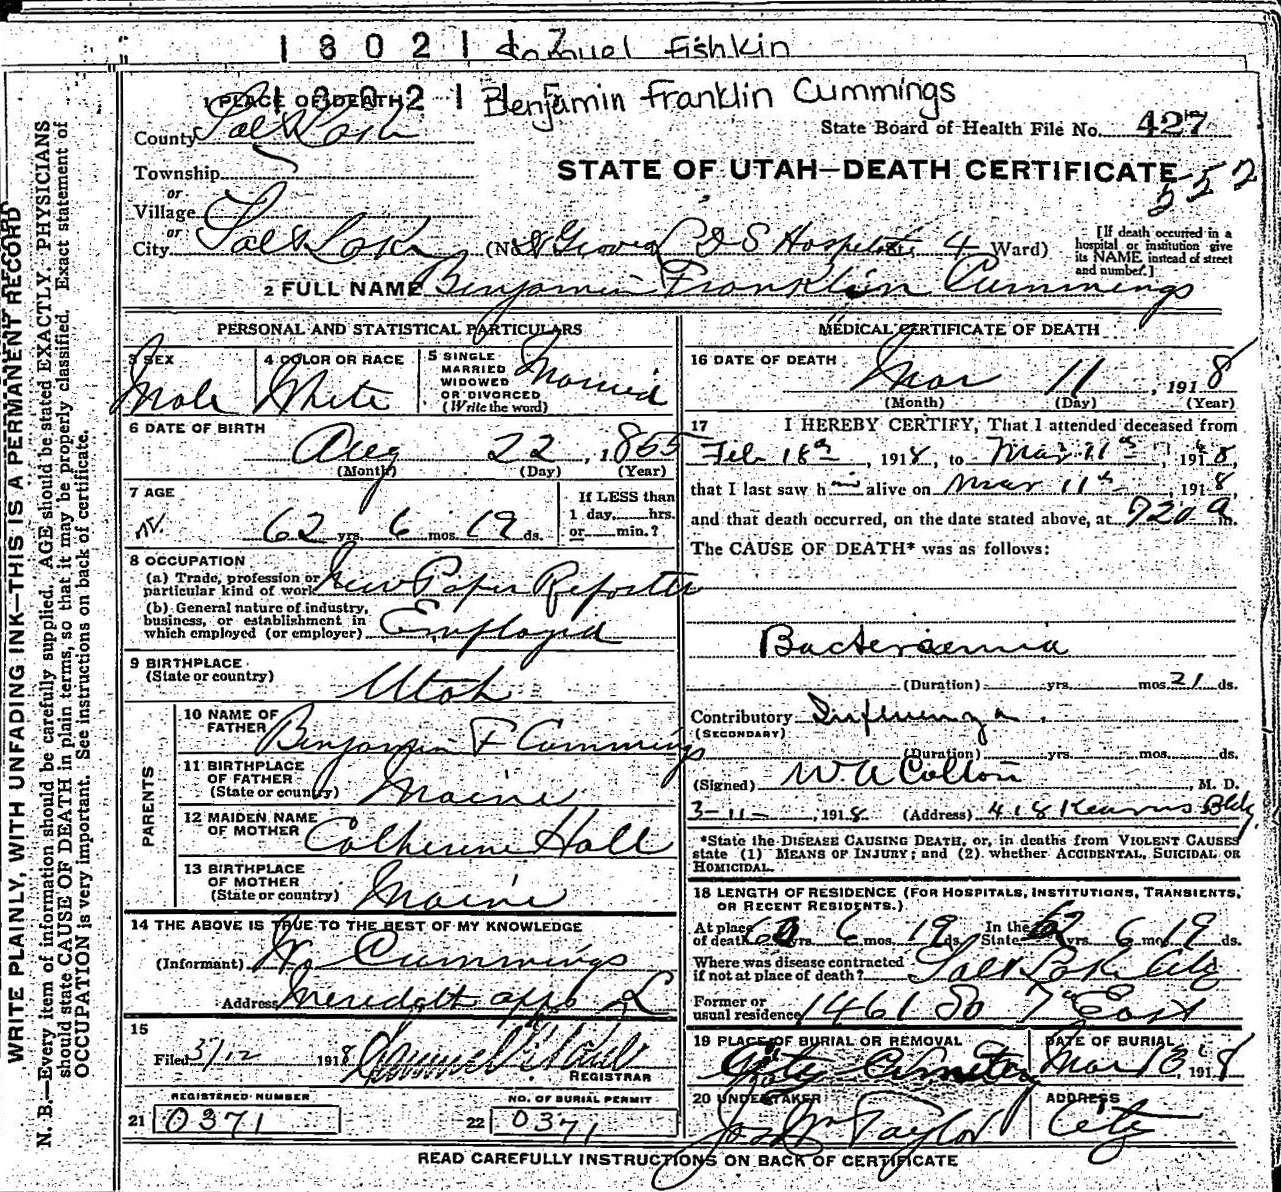 1 8 0 2 1 Samuel Fishkin
1 8 0 2 1 Benjamin Franklin Cummings
1 PLACE OF DEATH
County Salt Lake
State Board of Health File No. 427
Township
STATE OF UTAH—DEATH CERTIFICATE
552
or
Village
or
City Salt Lake (No. L D S Hospital, 4 Ward)
[If death occurred in a
hospital or institution give
its NAME instead of street
and number.]
2 FULL NAME Benjamin Franklin Cummings
PERSONAL AND STATISTICAL PARTICULARS
3 SEX
Male
4 COLOR OR RACE
White
5 SINGLE
MARRIED
WIDOWED
OR DIVORCED
(Write the word)
Married
6 DATE OF BIRTH
Aug 22, 1855
(Month) (Day) (Year)
7 AGE
62 yrs. 6 mos. 19 ds.
If LESS than
1 day, hrs.
or min.?
8 OCCUPATION
(a) Trade, profession or
particular kind of work News Paper Reporter
(b) General nature of industry,
business, or establishment in
which employed (or employer) Employed
9 BIRTHPLACE
(State or country)
Utah
PARENTS
10 NAME OF
FATHER
Benjamin F Cummings
11 BIRTHPLACE
OF FATHER
(State or country)
Maine
12 MAIDEN NAME
OF MOTHER
Catherine Hall
13 BIRTHPLACE
OF MOTHER
(State or country)
Maine
14 THE ABOVE IS TRUE TO THE BEST OF MY KNOWLEDGE
(Informant) Cummings
Address
15
Filed 3/12 1918
REGISTRAR
REGISTERED NUMBER
21 0371
NO. OF BURIAL PERMIT
22 0371
MEDICAL CERTIFICATE OF DEATH
16 DATE OF DEATH
Mar 11, 1918
(Month) (Day) (Year)
17 I HEREBY CERTIFY, That I attended deceased from
Feb 18th, 1918, to Mar 11th, 1918,
that I last saw him alive on Mar 11th, 1918,
and that death occurred, on the date stated above, at 720 a m.
The CAUSE OF DEATH* was as follows:
Bacteriaemia
(Duration) yrs. mos. 21 ds.
Contributory Influenza.
(SECONDARY)
(Duration) yrs. mos. ds.
(Signed) W. A Colton, M. D.
3-11-, 1918. (Address) 418 Kearns Bldg.
*State the DISEASE CAUSING DEATH, or, in deaths from VIOLENT CAUSES
state (1) MEANS OF INJURY; and (2) whether ACCIDENTAL, SUICIDAL OR
HOMICIDAL.
18 LENGTH OF RESIDENCE (FOR HOSPITALS, INSTITUTIONS, TRANSIENTS,
OR RECENT RESIDENTS.)
At place
of death 60 yrs. 6 mos. 19 ds.
In the
State 62 yrs. 6 mos. 19 ds.
Where was disease contracted
if not at place of death? Salt Lake City
Former or
usual residence 1461 So 7th East
19 PLACE OF BURIAL OR REMOVAL
City Cemetery
DATE OF BURIAL
Mar 13, 1918
20 UNDERTAKER
Jos Wm Taylor
ADDRESS
City
READ CAREFULLY INSTRUCTIONS ON BACK OF CERTIFICATE
WRITE PLAINLY, WITH UNFADING INK—THIS IS A PERMANENT RECORD
N. B.—Every item of information should be carefully supplied. AGE should be stated EXACTLY. PHYSICIANS
should state CAUSE OF DEATH in plain terms, so that it may be properly classified. Exact statement of
OCCUPATION is very important. See instructions on back of certificate.